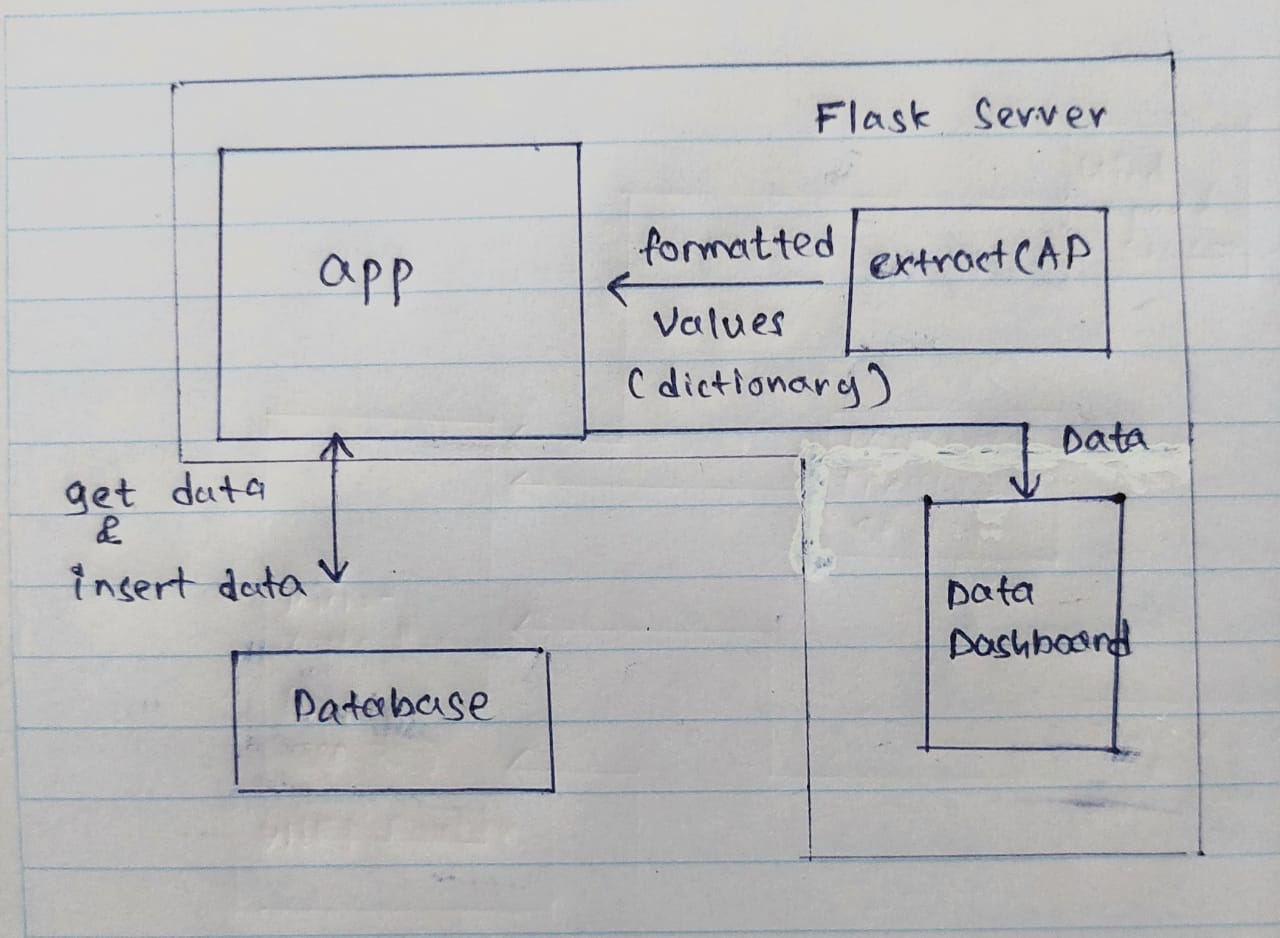 Flask Server
app
formatted
values
(dictionary)
extractCAP
Data
get data
&
insert data
Data
Dashboard
Database